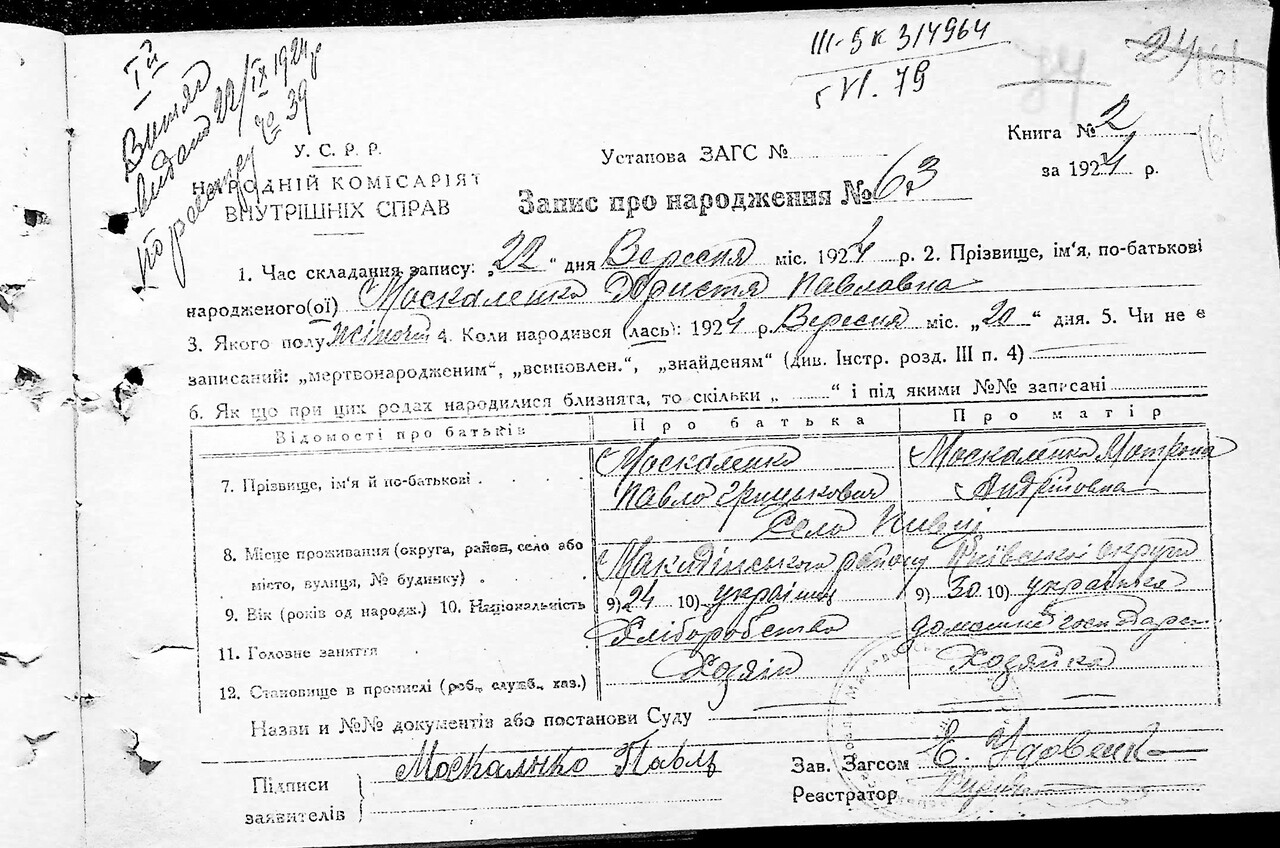 Іᵃ
Витяг
видано 22/IX 1924 р
по реєстру № 39
III-5 к 314964
VI. 79
24 161
У. С. Р. Р.
НАРОДНІЙ КОМІСАРІЯТ
ВНУТРІШНІХ СПРАВ
Установа ЗАГС №
Книга № 2
за 1924 р.
Запис про народження № 63
1. Час складання запису: „22“ дня Вересня міс. 1924 р. 2. Прізвище, ім'я, по-батькові
народженого(ої) Москаленко Христя Павловна
3. Якого полу жіночий 4. Коли народився (лась): 1924 р. Вересня міс. „20“ дня. 5. Чи не є
записаний: „мертвонародженим“, „всиновлен.“, „знайденям“ (див. Інстр. розд. III п. 4)
6. Як що при цих родах народилися близнята, то скільки „ “ і під якими №№ записані
Відомості про батьків Про батька Про матір
7. Прізвище, ім'я й по-батькові Москаленко Москаленко Мотрона
Павло Грицькович Андріївна
8. Місце проживання (округа, район, село або Село
місто, вулиця, № будинку) Макарівского району Київської округи
9. Вік (років од народж.) 10. Національність 9) 24 10) українц 9) 30 10) українка
11. Головне заняття Хліборобство домашнє господарс.
12. Становище в промислі (роб., служб., хаз.) Хозяїн Хозяйка
Назви и №№ документів або постанови Суду
Підписи
заявителів
Москалнко Павль
Зав. Загсом Е. Удовенко
Реєстратор